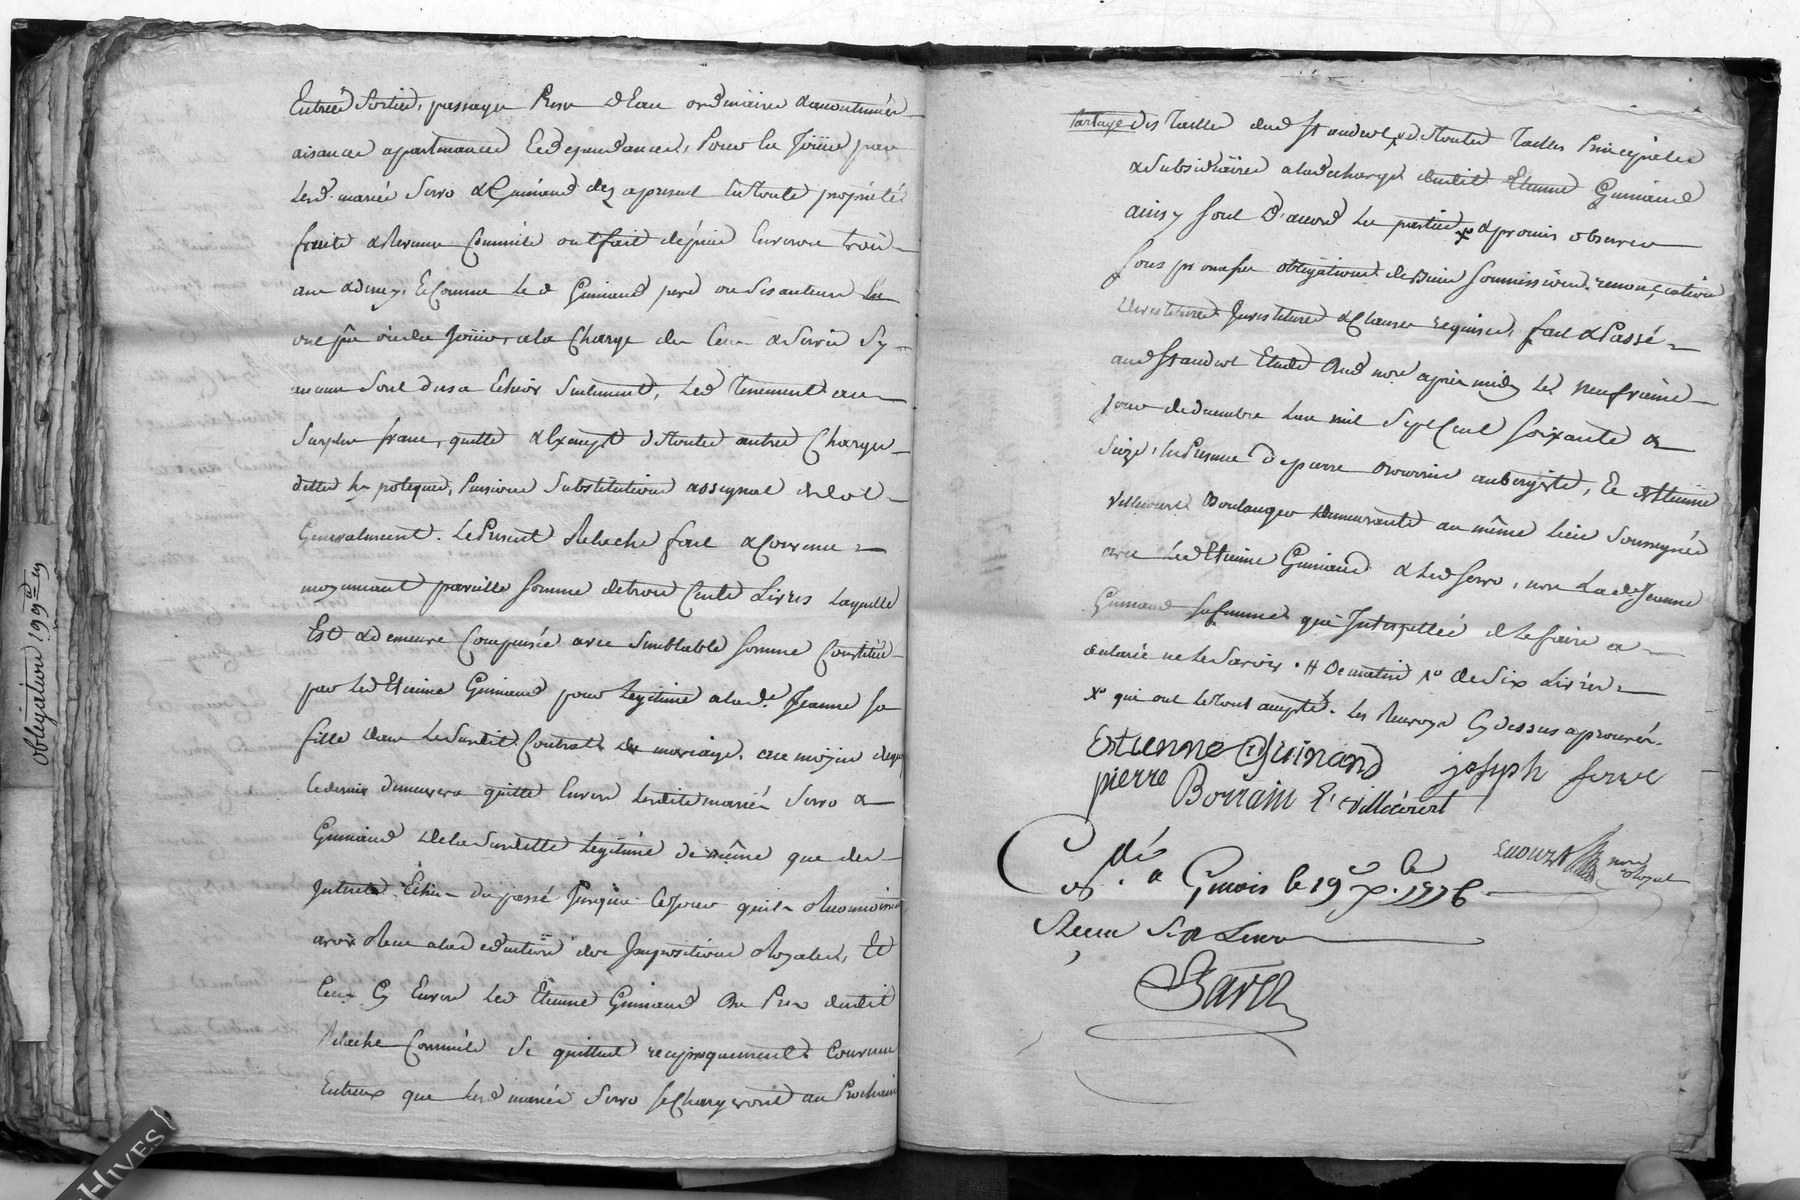 Entrée Sortie, passage Prise D'Eau ordinaire & acoutumée
aisances apartenances & dependances, Pour En Joüir par
Lesd. mariés Serro & Guinand dez apresent En toute proprieté
fruits & Revenus Comm'ils ont fait dépuis Environ trois
ans & demy, & Comme Led Guinand pere ou Ses auteurs En
ont pû ou dû Joüir, a la Charge des Cens & Servis Sy
aucuns Sont dus a Echoir Seulement, Led tenement au
Surplus franc, quitte & Exempt de toutes autres Charges
dettes hypoteques, Pensions Substitutions assignat de dot
Generalement. Le Present Relache fait & Convenu
moyennant pareille Somme de trois Cents Livres Laquelle
Est & demeure Compensée avec Semblable Somme Constituée
par Led Etienne Guinand pour Legitime a lad. Jeanne Sa
fille dans Le Susdit Contrat de mariage. au moyen dequoy
Ce dernier demeurera quitte Envers Lesdits mariés Serro &
Guinand de la Susditte Legitime de même que des
Interets Echus du passé Jusqu'a Ce Jour qu'ils Reconnoissent
avoir Reçu a la deduction des Impositions Royales, Et
Ceux Cy Envers Led Etienne Guinand du Prix dudit
Relache Comm'ils Se quittent reciproquement Convenu
Entreux que Lesd mariés Serro Se Chargeront au Prochain
Partage des Tailles dud St andeol, & de toutes Tailles Principales
& Subsidiaires a la decharge dudit Etienne Guinand
ainsy Sont D'accord Les parties x° & promis observer
Sous promesses obligations de Biens Soumissions. renonciations
devestitures Investitures & Clauses requises, fait & Passé
aud St andeol Etude Dud no.re après midy Le neufvieme
jour de decembre Lan mil Sept Cent Soixante &
Seize, En Presence de pierre Bourrain aubergiste, Et Etienne
Villecourt Boulanger demeurants au même lieu Soussignés
avec Led Etienne Guinand & Led Serro, non Lad. Jeanne
Guinand Sa femme qui Interpellée de Le faire a
declaré ne Le Savoir. # de matin x° de Six Livres
x° qui ont Le tout accepté. Les Renvoys Cy dessus aprouvés.
Estienne Guinand joseph Serre
pierre Bourrain E. Villecourt
no.re Royal
C.dé a le 19 X.bre 1776
Reçu Sept Livres
Obligation 199
HIVES